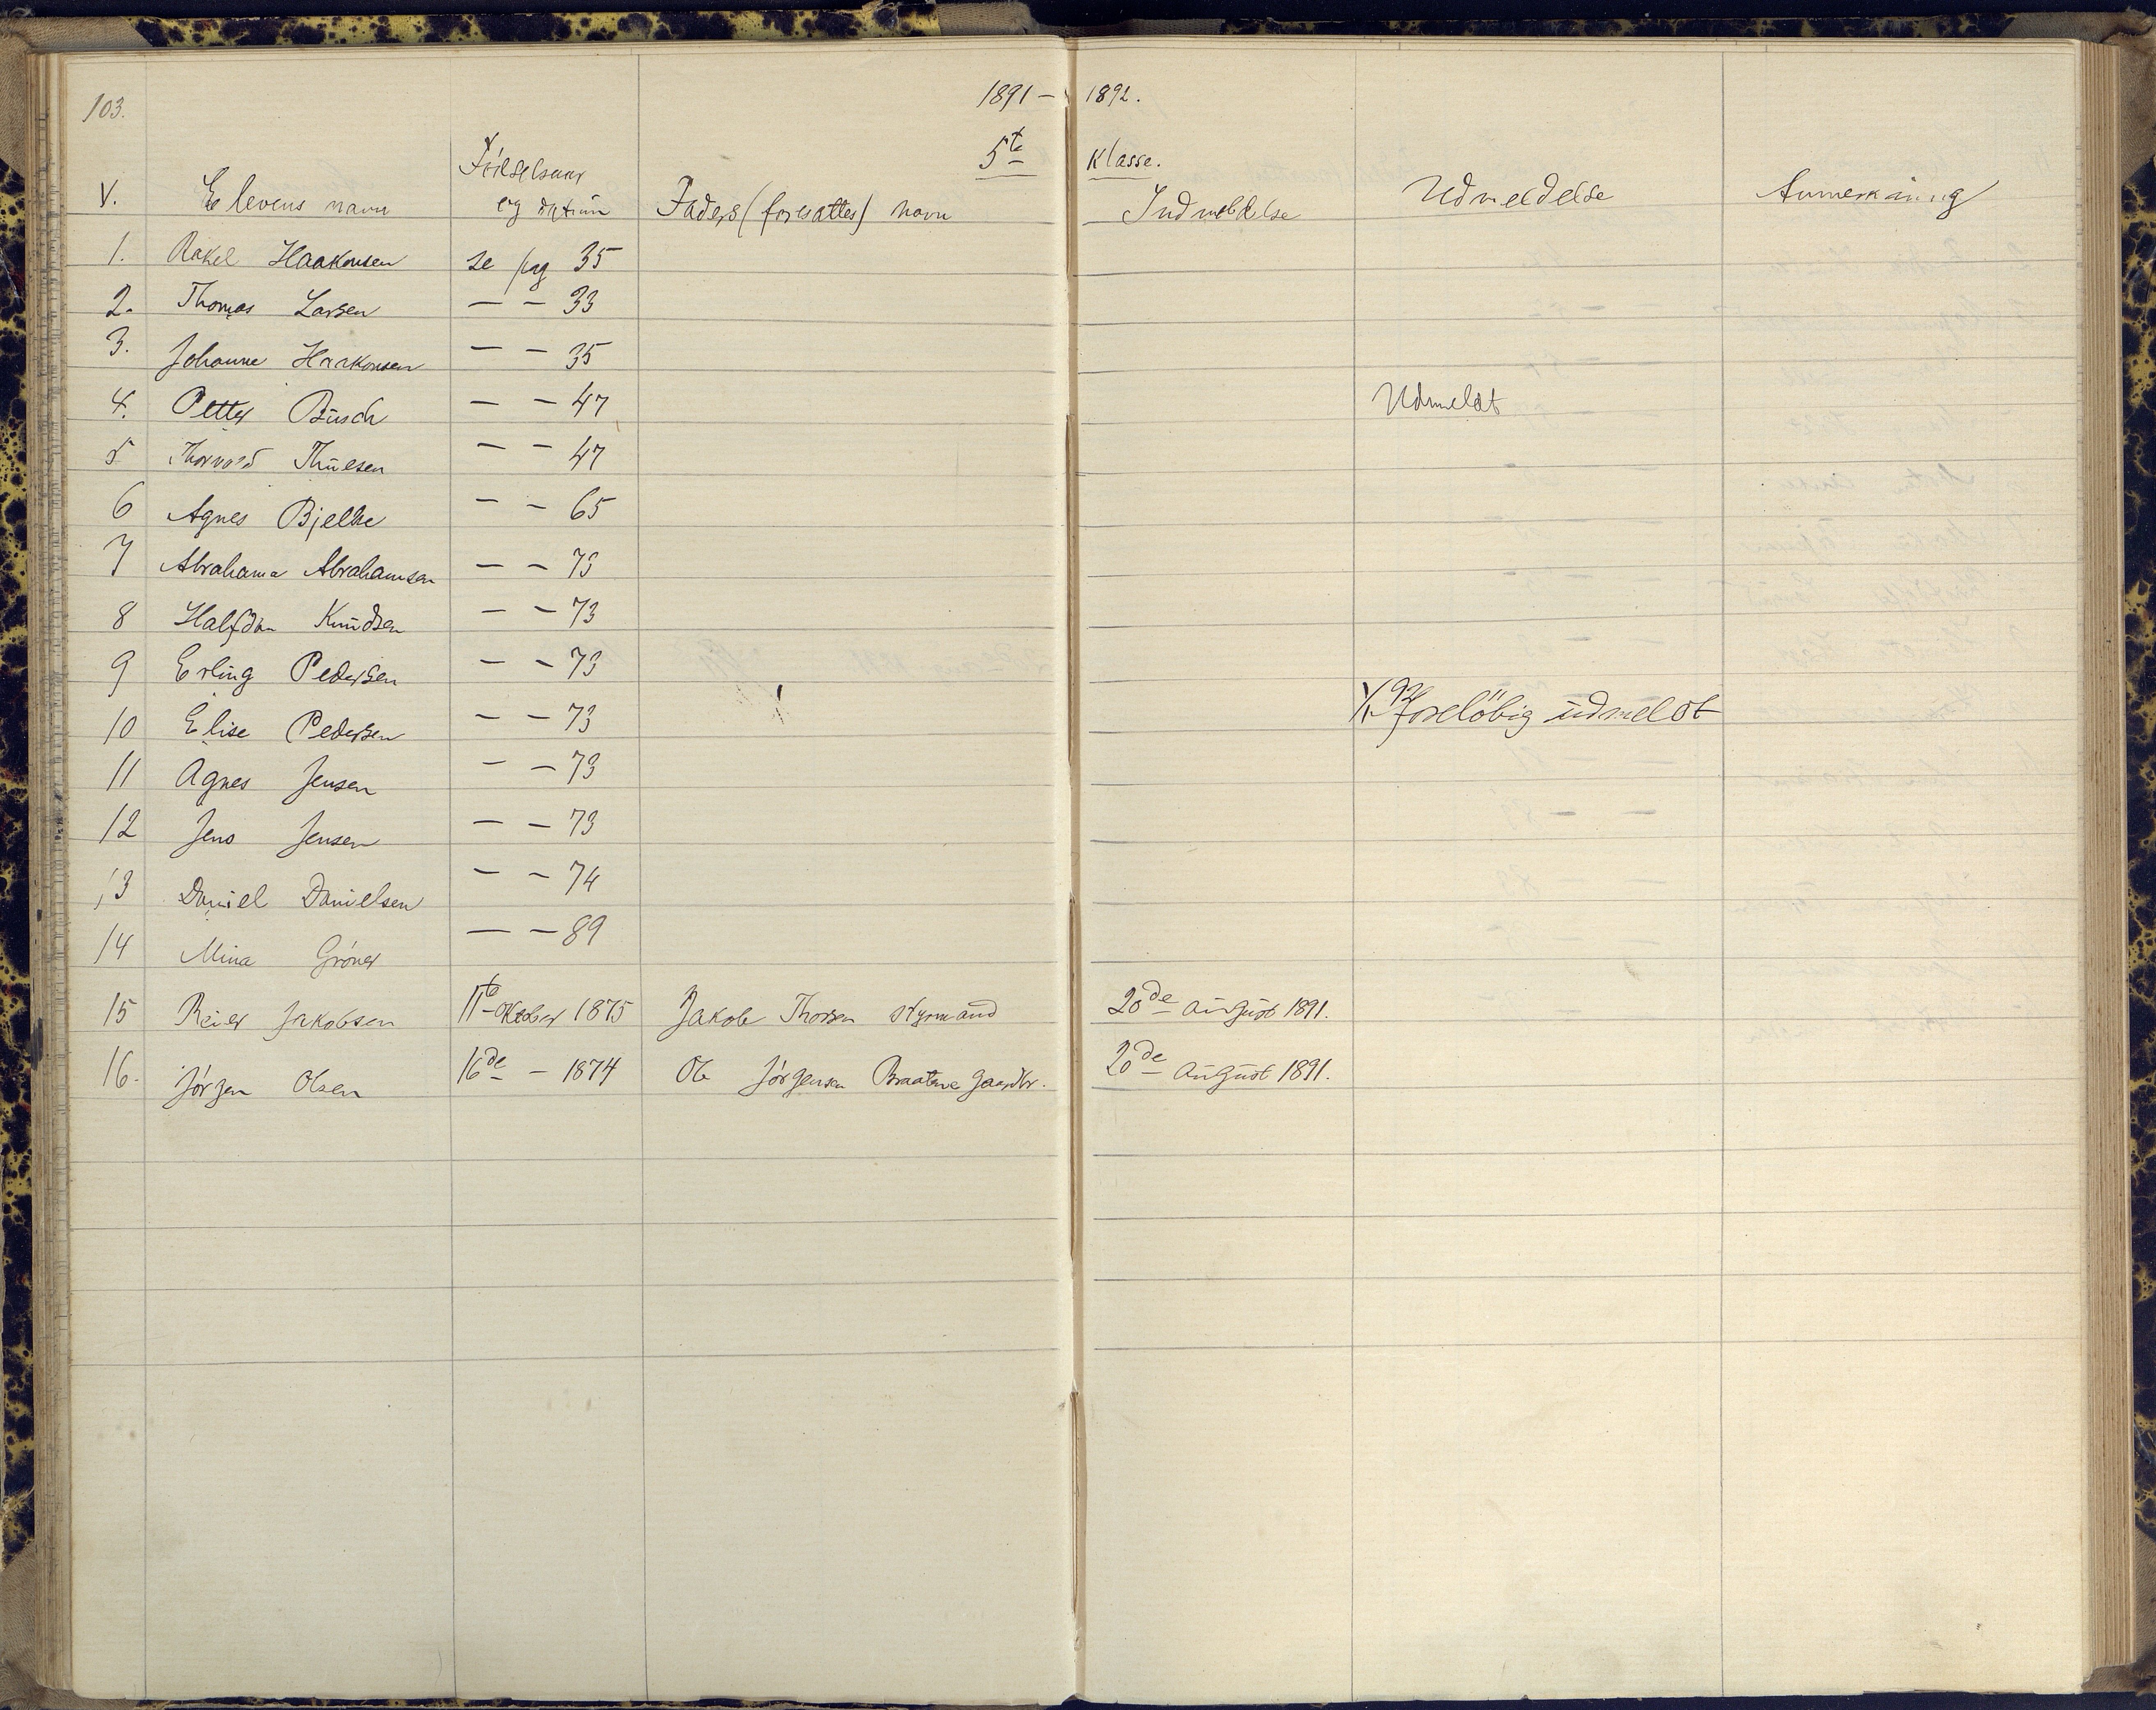 103.
1891 - 1892.
5te Klasse.
V. Elevens navn Fødselsaar og datum Faders (foresattes) navn Indmeldelse Udmeldelse Anmerkning
1. Rakel Haakonsen se pag 35
2. Thomas Larsen — — 33
3. Johanne Haakonsen — — 35
4. Petter Busch — — 47 Udmeldt
5 Thorvald Thuesen — — 47
6 Agnes Bjelke — — 65
7 Abrahama Abrahamsen — — 73
8 Halfdan Knudsen — — 73
9 Erling Pedersen — — 73
10 Elise Pedersen — — 73 92 foreløbig udmeldt
11 Agnes Jensen — — 73
12 Jens Jensen — — 73
13 Daniel Danielsen — — 74
14 Mina Grøner — — 89
15 Reier Jakobsen 11te Oktober 1875 Jakob Thorsen styrmand 20de august 1891.
16. Jørgen Olsen 16de — 1874 Ole Jørgensen Braatene gaardbr. 20de august 1891.